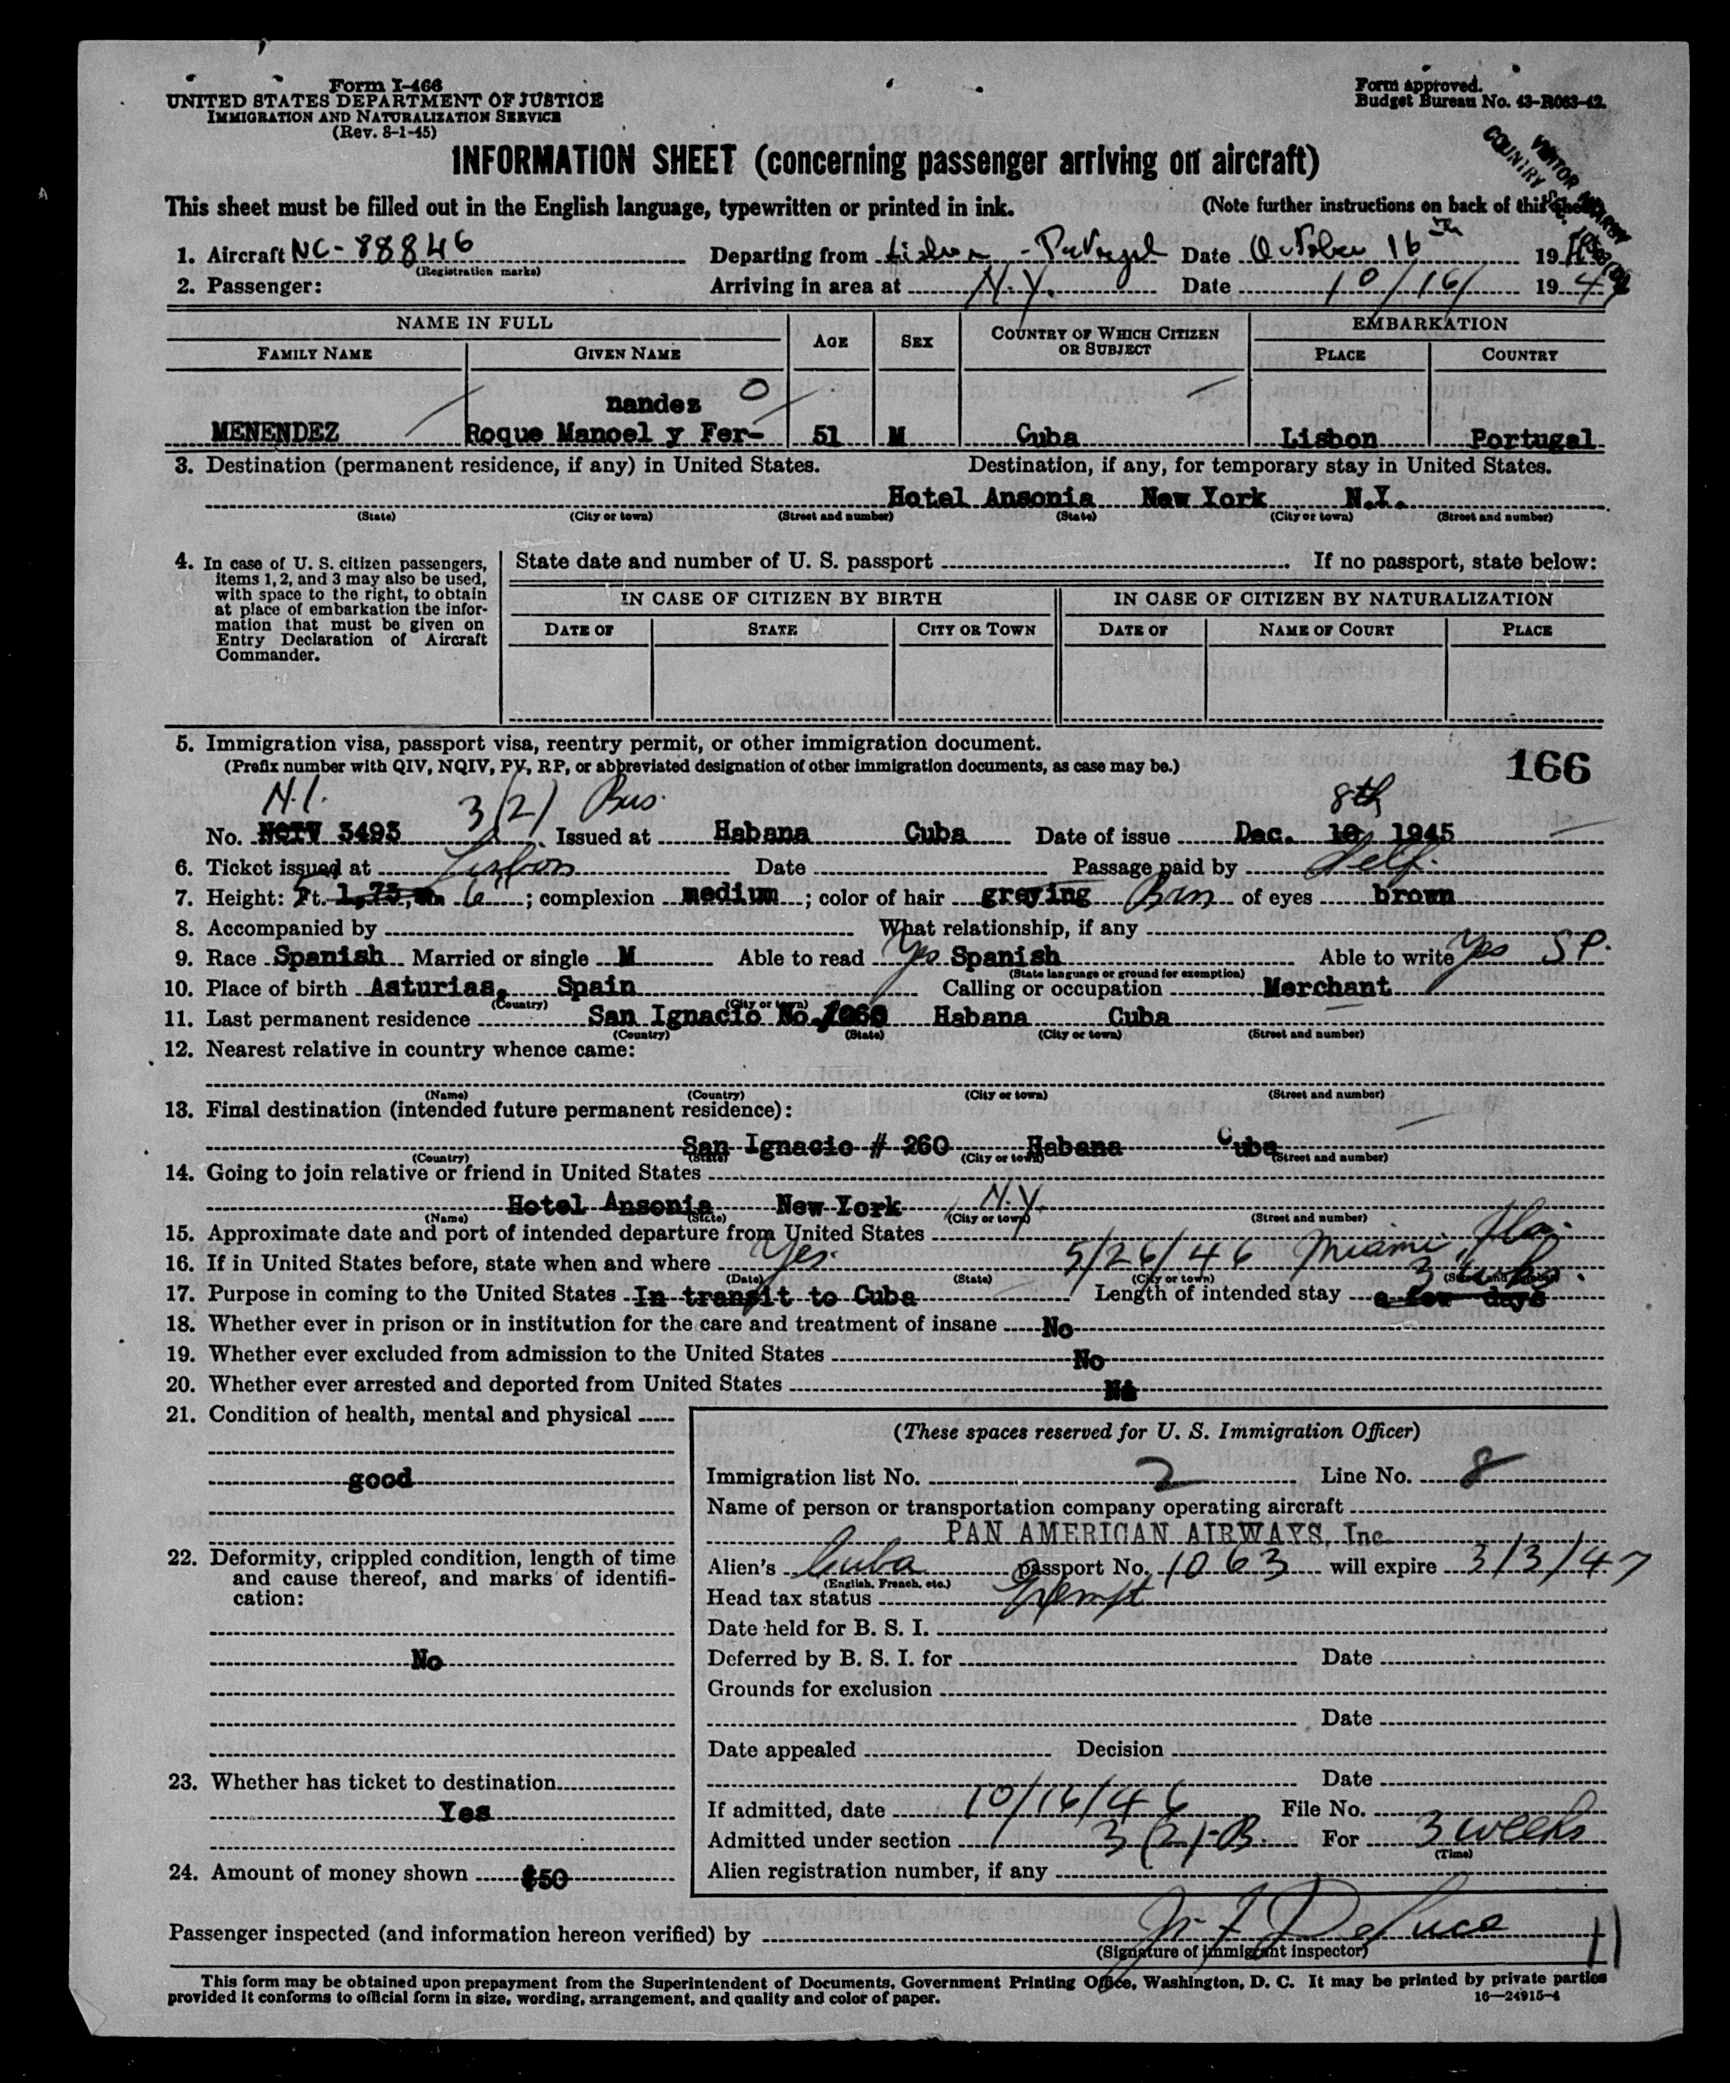 Form I-466
UNITED STATES DEPARTMENT OF JUSTICE
IMMIGRATION AND NATURALIZATION SERVICE
(Rev. 8-1-45)
Form approved.
Budget Bureau No. 43-R063-42.
INFORMATION SHEET (concerning passenger arriving on aircraft)
This sheet must be filled out in the English language, typewritten or printed in ink. (Note further instructions on back of this sheet)
1. Aircraft NC-88846 Departing from Lisbon - Portugal Date October 16th 19
(Registration marks)
2. Passenger: Arriving in area at N.Y. Date 10/16/ 19 4
NAME IN FULL AGE SEX COUNTRY OF WHICH CITIZEN OR SUBJECT EMBARKATION
FAMILY NAME GIVEN NAME PLACE COUNTRY
nandez O
MENENDEZ Roque Manoel y Fer- 51 M Cuba Lisbon Portugal
3. Destination (permanent residence, if any) in United States. Destination, if any, for temporary stay in United States.
Hotel Ansonia New York N.Y.
(State) (City or town) (Street and number) (State) (City or town) (Street and number)
4. In case of U. S. citizen passengers, items 1, 2, and 3 may also be used, with space to the right, to obtain at place of embarkation the information that must be given on Entry Declaration of Aircraft Commander.
State date and number of U. S. passport If no passport, state below:
IN CASE OF CITIZEN BY BIRTH IN CASE OF CITIZEN BY NATURALIZATION
DATE OF STATE CITY OR TOWN DATE OF NAME OF COURT PLACE
5. Immigration visa, passport visa, reentry permit, or other immigration document.
(Prefix number with QIV, NQIV, PV, RP, or abbreviated designation of other immigration documents, as case may be.)
166
N.I. 3(2) Bus. 8th
No. NQIV 3493 Issued at Habana Cuba Date of issue Dec. 10 1945
6. Ticket issued at Lisbon Date Passage paid by Self.
7. Height: Ft. 1,75, m 6"; complexion medium; color of hair greying Brn of eyes brown
8. Accompanied by What relationship, if any
9. Race Spanish Married or single M Able to read Yes Spanish Able to write Yes SP.
(State language or ground for exemption)
10. Place of birth Asturias, Spain Calling or occupation Merchant
(Country) (City or town)
11. Last permanent residence San Ignacio No. 260 Habana Cuba
(Country) (State) (City or town) (Street and number)
12. Nearest relative in country whence came:
(Name) (Country) (City or town) (Street and number)
13. Final destination (intended future permanent residence):
San Ignacio # 260 Habana Cuba
(Country) (State) (City or town) (Street and number)
14. Going to join relative or friend in United States
Hotel Ansonia New York N.Y.
(Name) (State) (City or town) (Street and number)
15. Approximate date and port of intended departure from United States
16. If in United States before, state when and where Yes. 5/26/46 Miami, Fla.
(Date) (State) (City or town) (Street and number)
17. Purpose in coming to the United States In transit to Cuba Length of intended stay a few days 3 wks.
18. Whether ever in prison or in institution for the care and treatment of insane No
19. Whether ever excluded from admission to the United States No
20. Whether ever arrested and deported from United States No
21. Condition of health, mental and physical
good
22. Deformity, crippled condition, length of time and cause thereof, and marks of identification:
No
23. Whether has ticket to destination
Yes
24. Amount of money shown $50
(These spaces reserved for U. S. Immigration Officer)
Immigration list No. 2 Line No. 8
Name of person or transportation company operating aircraft
PAN AMERICAN AIRWAYS, Inc.
Alien's Cuba passport No. 1063 will expire 3/3/47
(English, French, etc.)
Head tax status Exempt
Date held for B. S. I.
Deferred by B. S. I. for Date
Grounds for exclusion
Date
Date appealed Decision
Date
If admitted, date 10/16/46 File No.
Admitted under section 3(2)-B. For 3 weeks
(Time)
Alien registration number, if any
Passenger inspected (and information hereon verified) by DeLuca
(Signature of immigrant inspector)
This form may be obtained upon prepayment from the Superintendent of Documents, Government Printing Office, Washington, D. C. It may be printed by private parties
provided it conforms to official form in size, wording, arrangement, and quality and color of paper. 16—24915-4